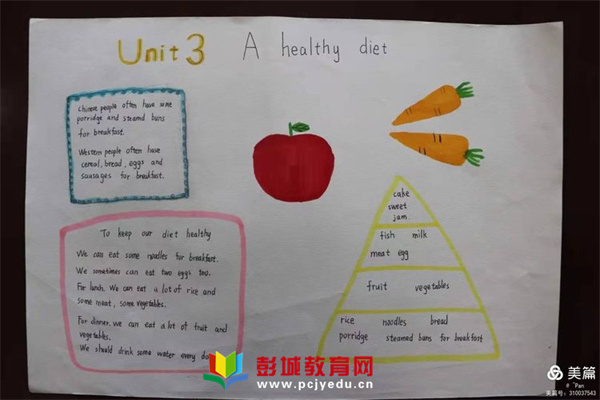 Unit 3 A healthy diet
Chinese people often have some
porridge and steamd buns
for breakfast.
Western people often have
cereal, bread, eggs and
sausages for breakfast.
To keep our diet healthy
We can eat some noodles for breakfast.
We sometimes can eat two eggs too.
For lunch, We can eat a lot of rice and
some meat, some vegetables.
For dinner, we can eat a lot of fruit and
vegetables.
We should drink some water every day.
cake
sweet
jam
fish milk
meat egg
fruit vegetables
rice noodles bread
porridge steamed buns for breakfast
彭城教育网
www.pcjyedu.cn
美篇
#°Pan
美篇号: 310037543